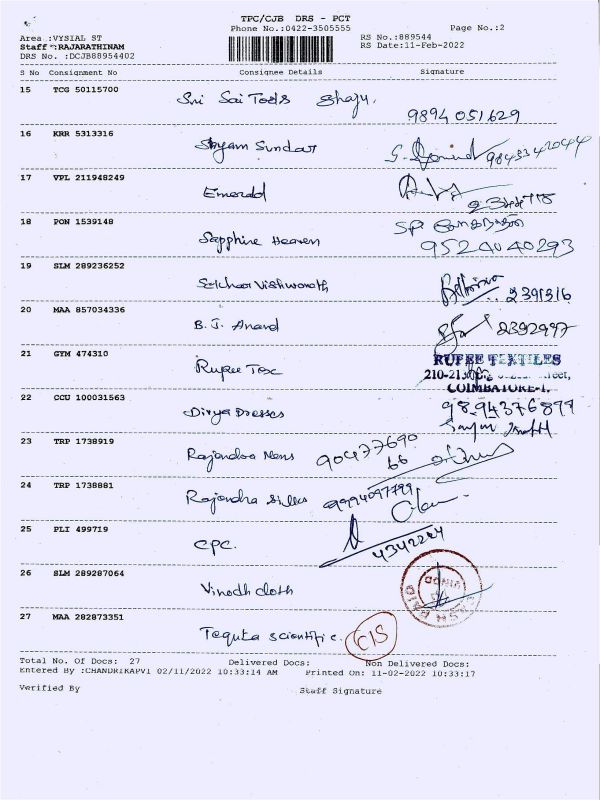 TPC/CJB DRS - PCT
Phone No.:0422-3505555 Page No.:2
Area :VYSIAL ST RS No.:889544
Staff :RAJARATHINAM RS Date:11-Feb-2022
DRS No. :DCJB88954402
S No Consignment No Consignee Details Signature
15 TCG 50115700
Sri Sai Tools Shaju.
9894 051629
16 KRR 5313316
Shyam Sundar
17 VPL 211948249
Emerald
18 PON 1539148
Sapphire Heaven
9524040293
19 SLM 289236252
Vishwanath 2391316
20 MAA 857034336
B. J. Anand 2392997
21 GYM 474310
Rupee Tex
RUPEE TEXTILES
COIMBATORE-1.
22 CCU 100031563
Divya Dresses 9894376899
23 TRP 1738919
Rajendra Mens 90477690
66
24 TRP 1738881
Rajendra Silks 9994097799
25 PLI 499719
CPC. 4342224
26 SLM 289287064
Vinodh cloth
27 MAA 282873351
Tequta scientific. CIS
Total No. Of Docs: 27 Delivered Docs: Non Delivered Docs:
Entered By :CHANDRIKAPV1 02/11/2022 10:33:14 AM Printed On: 11-02-2022 10:33:17
Verified By Staff Signature